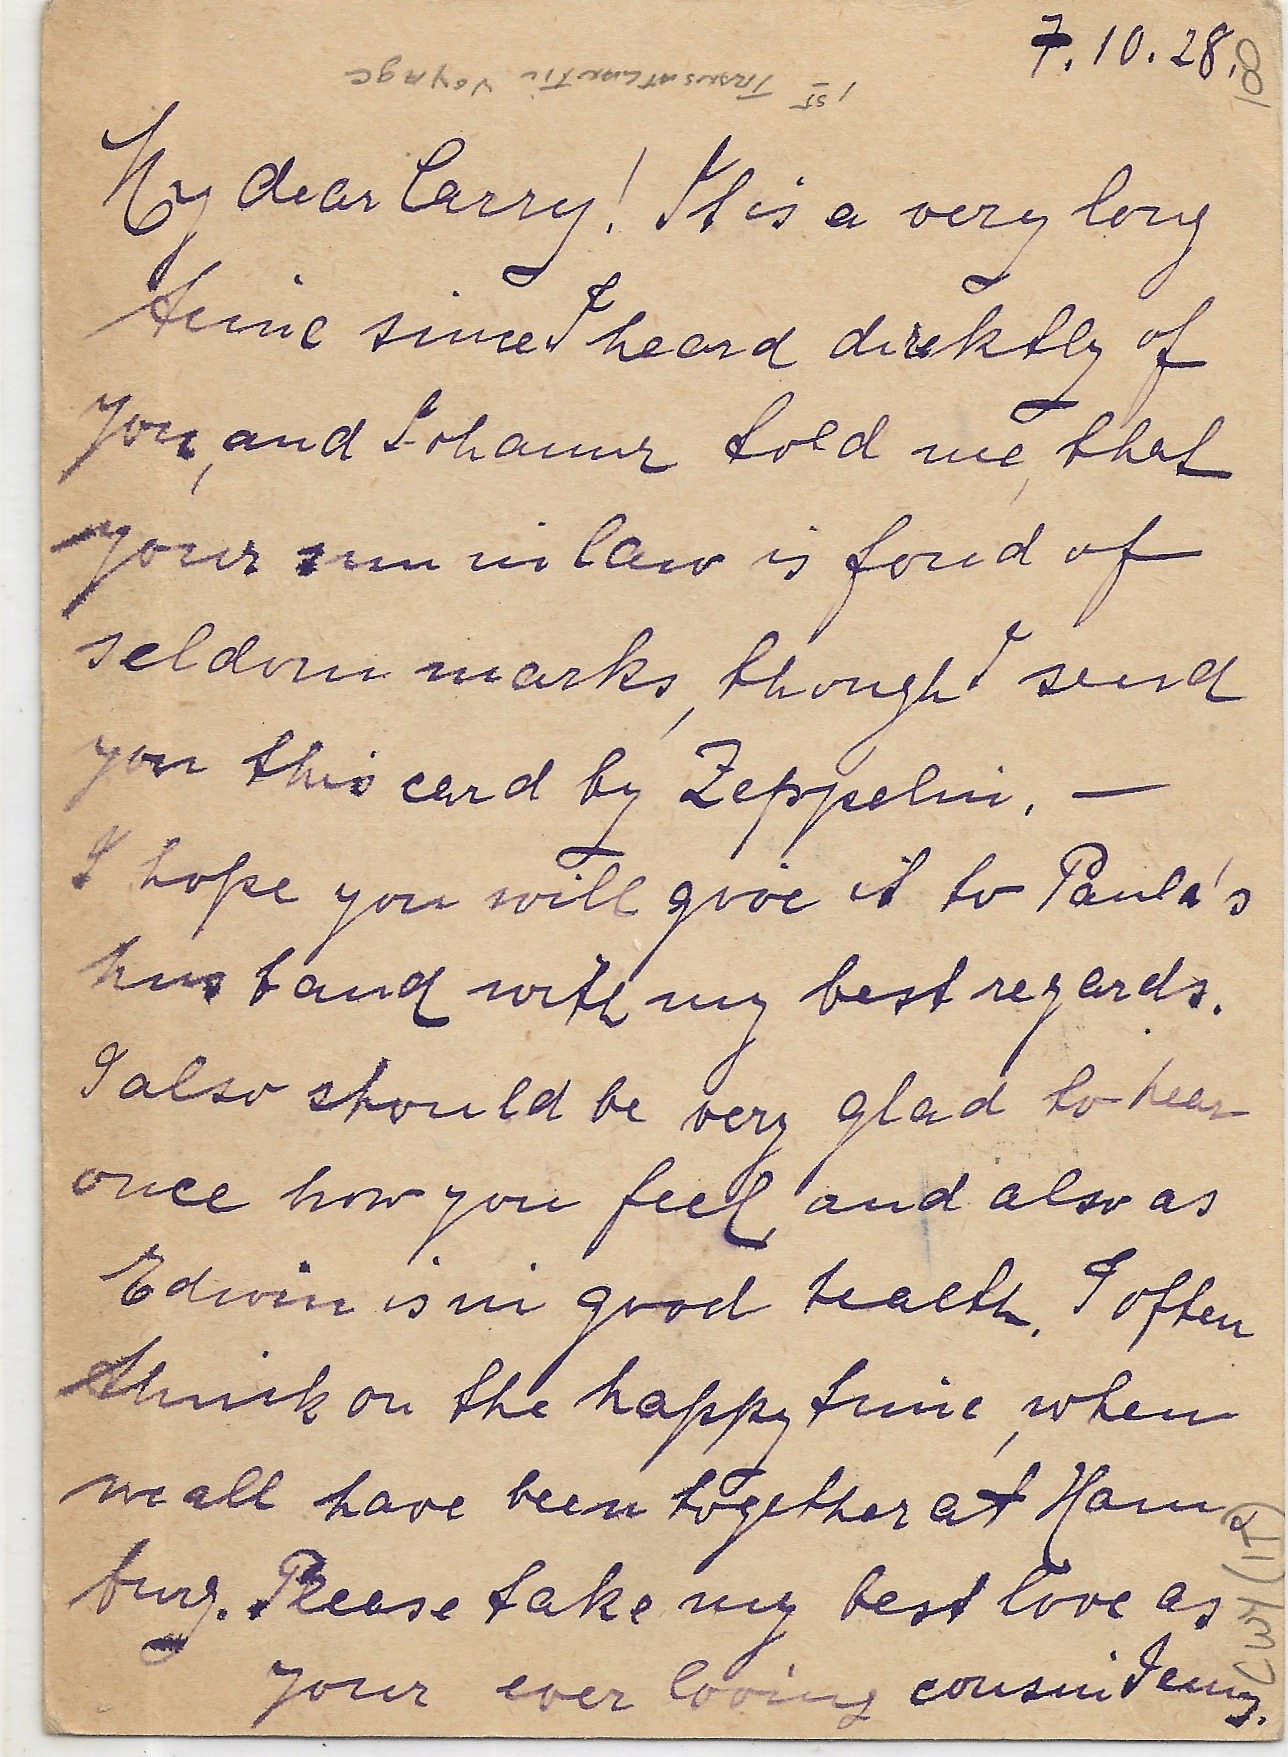 7.10.28.
100
1st Transatlantic Voyage
My dear Carry! It is a very long
time since I heard direktly of
you, and Johanna told me, that
your sun in law is fond of
seldom marks, though I send
you this card by Zeppelin. —
I hope you will give it to Paula's
husband with my best regards.
I also should be very glad to hear
once how you feel, and also as
Edwin is in good health. I often
think on the happy time, when
we all have been together at Ham
burg. Please take my best love as
your ever loving cousin Jenny.